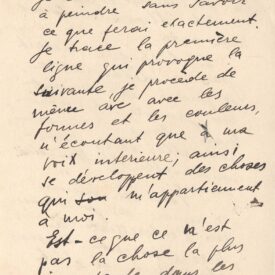 à peindre sans savoir
ce que ferai exactement.
Je trace la première
ligne qui provoque la
suivante je procède de
même avec avec les
formes et les couleurs,
n'écoutant que à ma
voix intérieure; ainsi
se développent des choses
qui son m'appartiennent
à moi.
Est-ce que ce n'est
pas la chose la plus
dans les